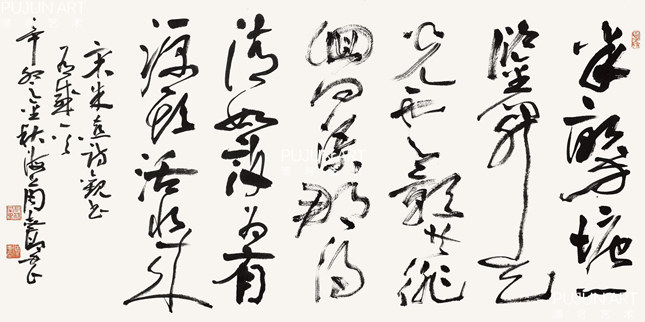 半畝方塘一
鑑開天
光雲影共徘
徊問渠那得
清如許為有
源頭活水来
宋朱熹詩觀書
有感一首
辛卯之年秋
PUJUN ART
PUJUN ART
PUJUN ART
PUJUN ART